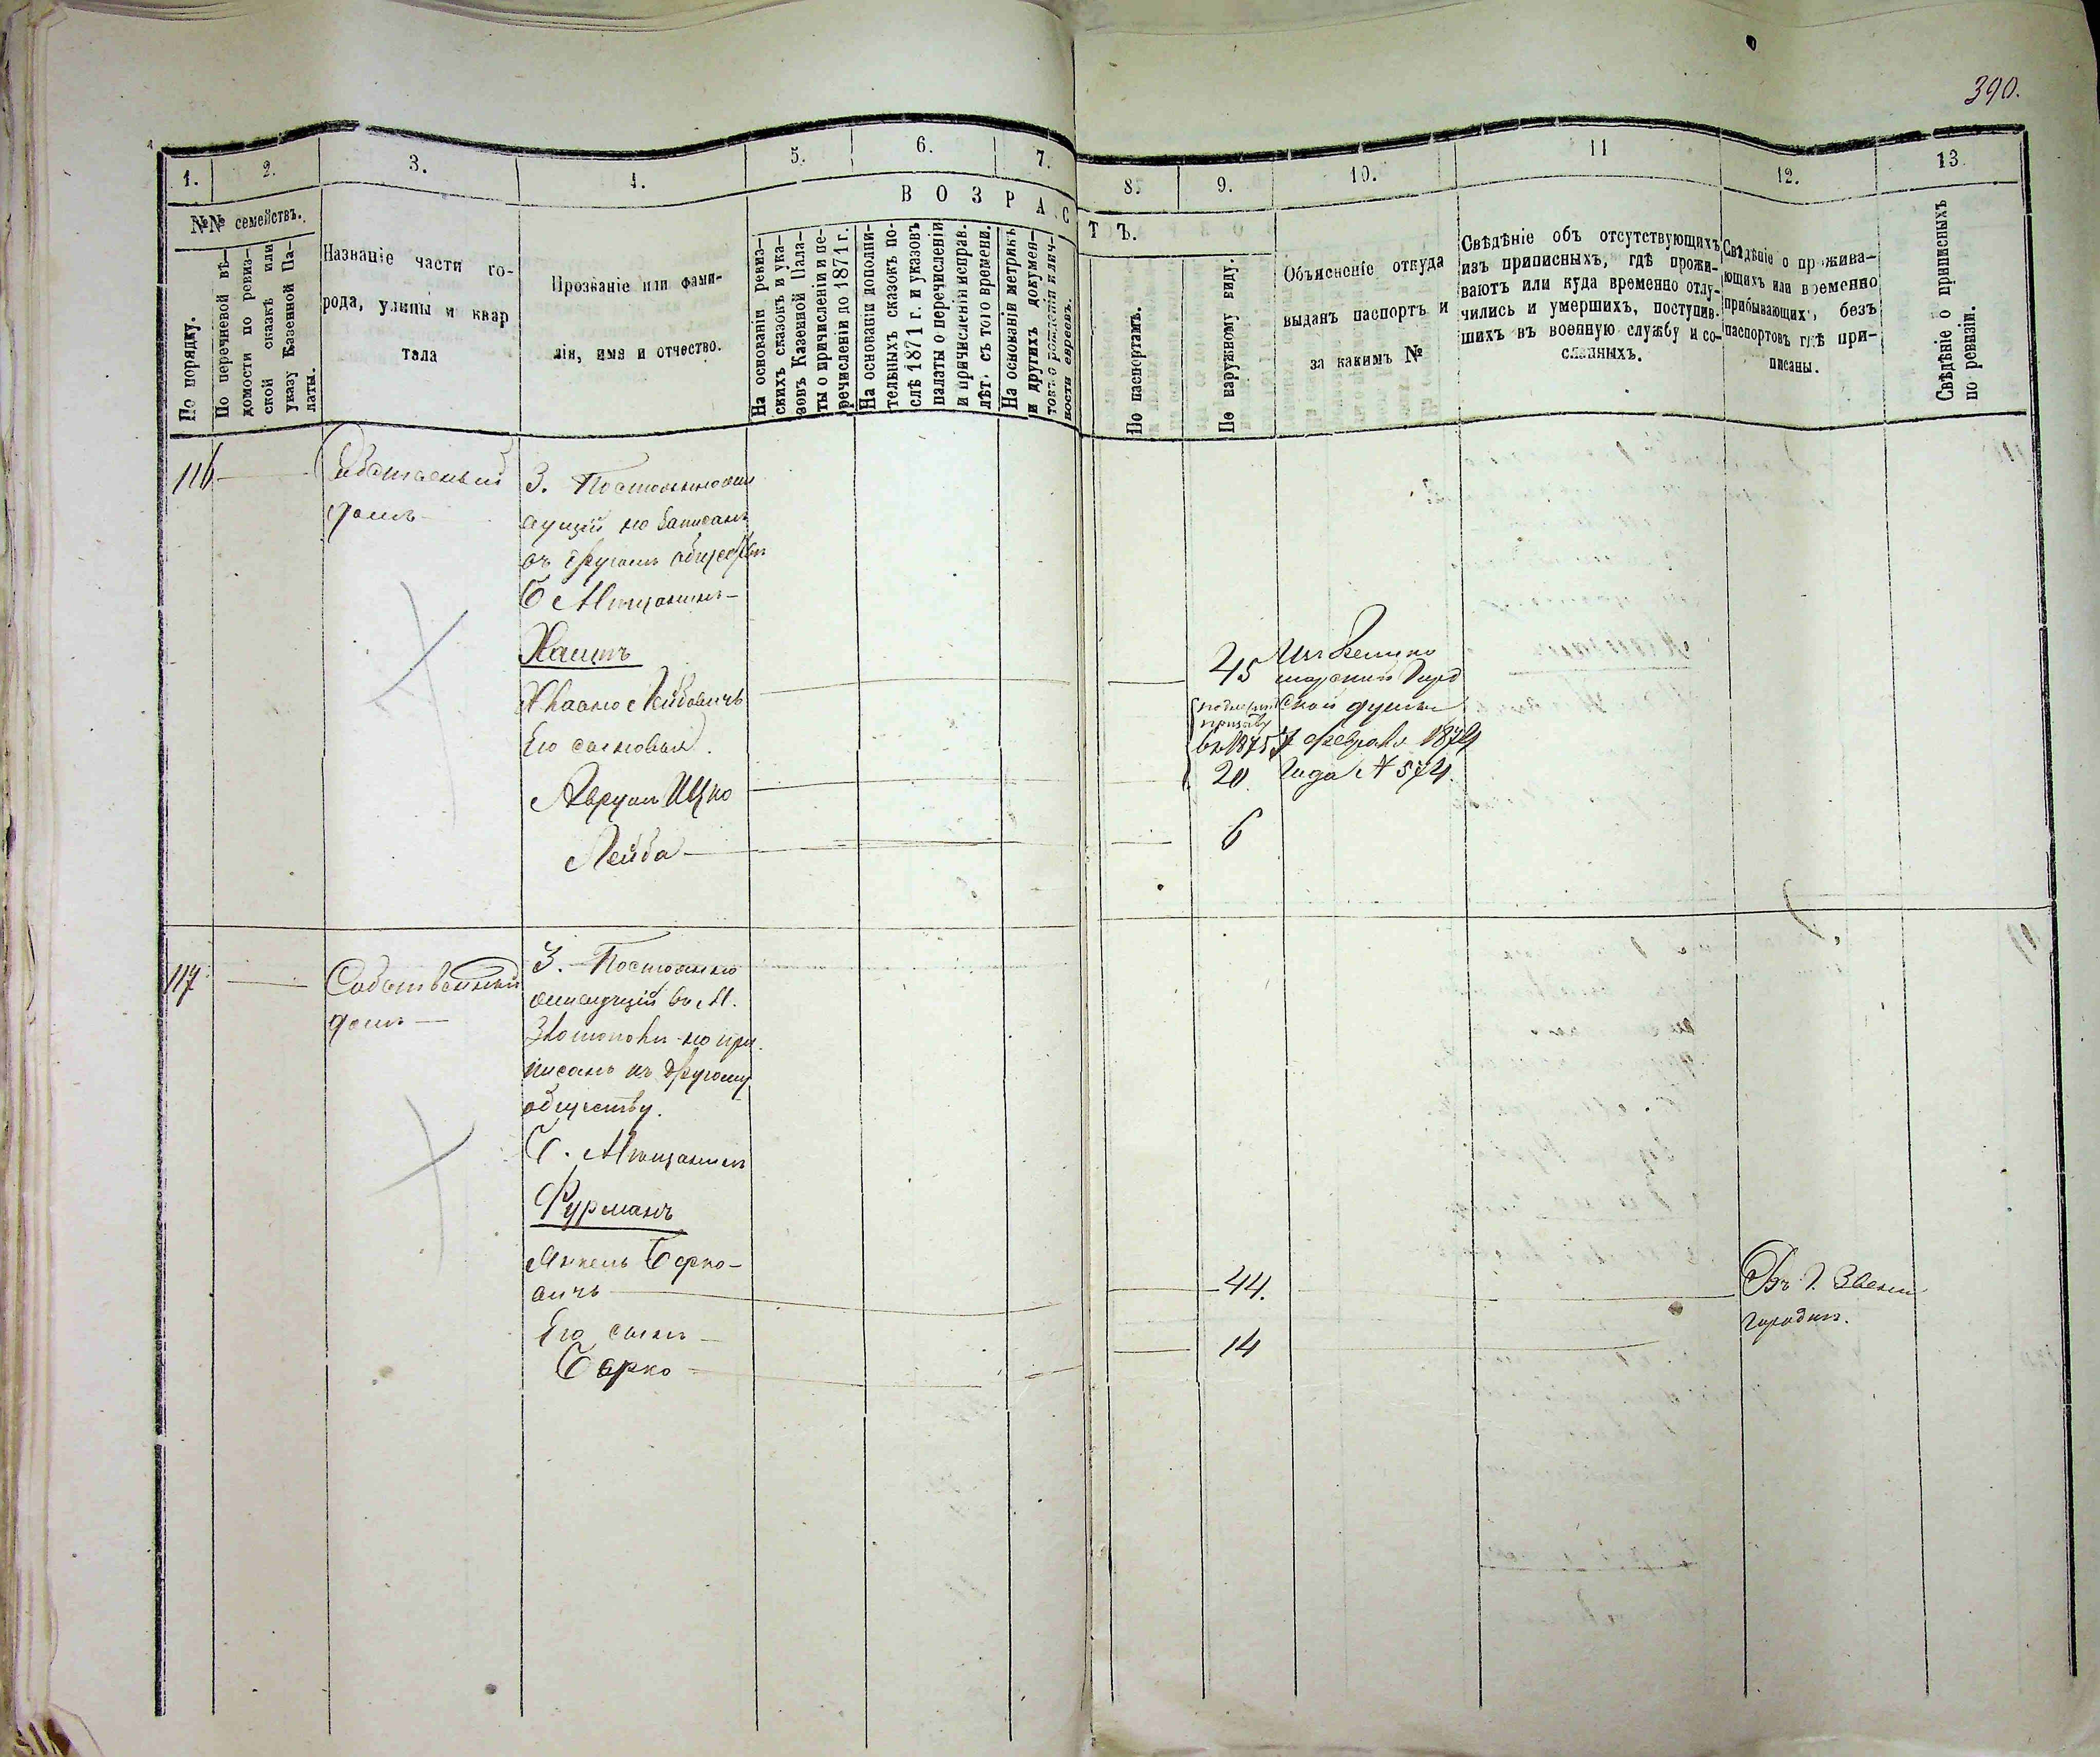 390.
1.
2.
3.
4.
5.
6.
7.
8.
9.
10.
11
12.
13.
№№ семействъ.
По порядку.
По перечневой вѣ-
домости по ревиз-
ской сказкѣ или
указу Казенной Па-
латы.
Названіе части го-
рода, улицы и квар
тала
Прозваніе или фами-
лія, имя и отчество.
ВОЗРАС
ТЪ.
На основаніи ревиз-
скихъ сказокъ и ука-
зовъ Казенной Пала-
ты о причисленіи и пе-
речисленіи до 1871 г.
На основаніи дополни-
тельныхъ сказокъ по-
слѣ 1871 г. и указовъ
палаты о перечисленіи
и причисленіи исправ.
лѣт. съ того времени.
На основаніи метрикъ
и другихъ докумен-
товъ о рожденіи и лич-
ности евреевъ.
По паспортамъ.
По наружному виду.
Объясненіе откуда
выданъ паспортъ и
за какимъ №
Свѣдѣніе объ отсутствующихъ
изъ приписныхъ, гдѣ прожи-
ваютъ или куда временно отлу-
чились и умершихъ, поступив-
шихъ въ военную службу и со-
сланныхъ.
Свѣдѣніе о прожива-
ющихъ или временно
прибывающихъ, безъ
паспортовъ гдѣ при-
писаны.
Свѣдѣніе о приписныхъ
по ревизіи.
116
домъ
З. Постоянно жи
вущій но записанъ
въ другомъ обществѣ
Б Мѣщанинъ
Хаитъ
Лейбовичъ
Его сыновья.
Аврумъ Ицко
Лейба
45
въ 1875
20
6
Скои думы
7 февраля 1874
года № 574.
117
Собственный
домъ
З. Постоянно
живущій въ М.
Златополи но при
писанъ къ другому
обществу.
Б. Мѣщанинъ
Фурманъ
Янкель Берко-
вичъ
Его сынъ
Берко
44.
14
Въ г. Звени
городки.